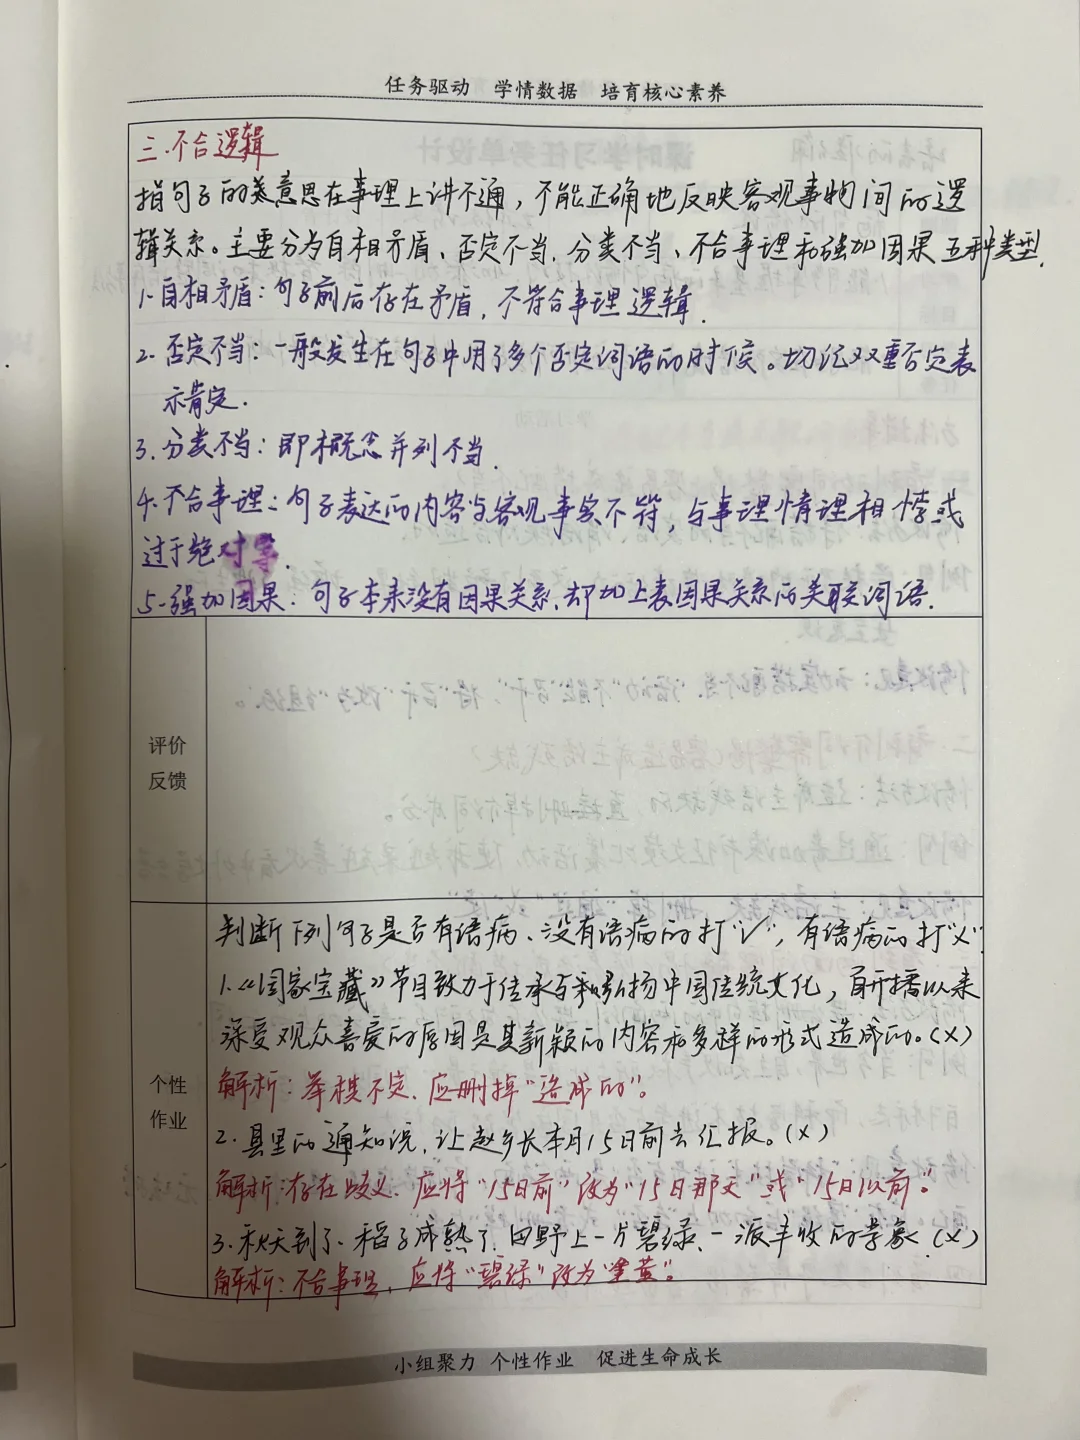 任务驱动 学情数据 培育核心素养
三.不合逻辑
指句子的某意思在事理上讲不通，不能正确地反映客观事物间的逻
辑关系。主要分为自相矛盾、否定不当、分类不当、不合事理和强加因果五种类型.
1.自相矛盾：句子前后存在矛盾，不符合事理逻辑.
2.否定不当：一般发生在句子中用了多个否定词语的时候。切记双重否定表
示肯定.
3.分类不当：即概念并列不当.
4.不合事理：句子表达的内容与客观事实不符，与事理情理相悖或
过于绝对等.
5.强加因果：句子本来没有因果关系，却加上表因果关系的关联词语.
评价
反馈
判断下列句子是否有语病、没有语病的打“√”，有语病的打“×”
1.《国家宝藏》节目致力于传承和弘扬中国传统文化，自开播以来
深受观众喜爱的原因是其新颖的内容和多样的形式造成的。(×)
解析：举棋不定，应删掉“造成的”。
个性
作业
2.县里的通知说，让赵乡长本月15日前去汇报。(×)
解析：存在歧义，应将“15日前”改为“15日那天”或“15日以前”。
3.秋天到了、稻子成熟了，田野上一片碧绿、一派丰收的景象.(×)
解析：不合事理，应将“碧绿”改为“金黄”。
小组聚力 个性作业 促进生命成长